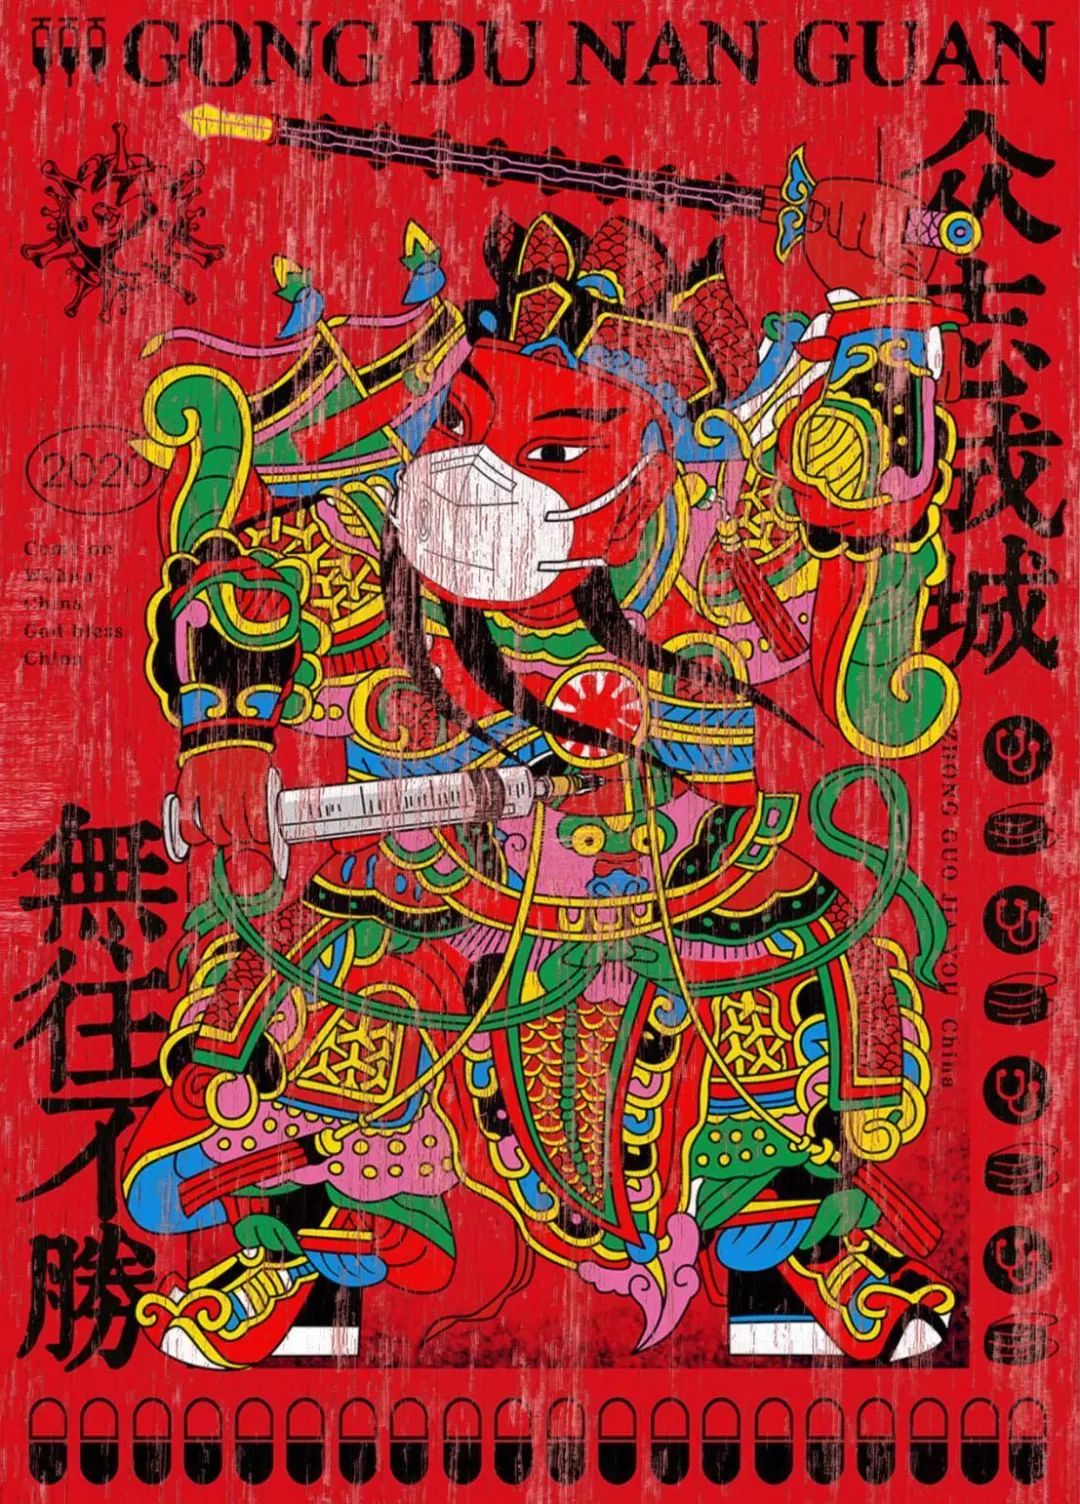 GONG DU NAN GUAN
众志成城
2020
Come on
Wuhan
China
God bless
China
ZHONG GUO JIA YOU China
無往不勝